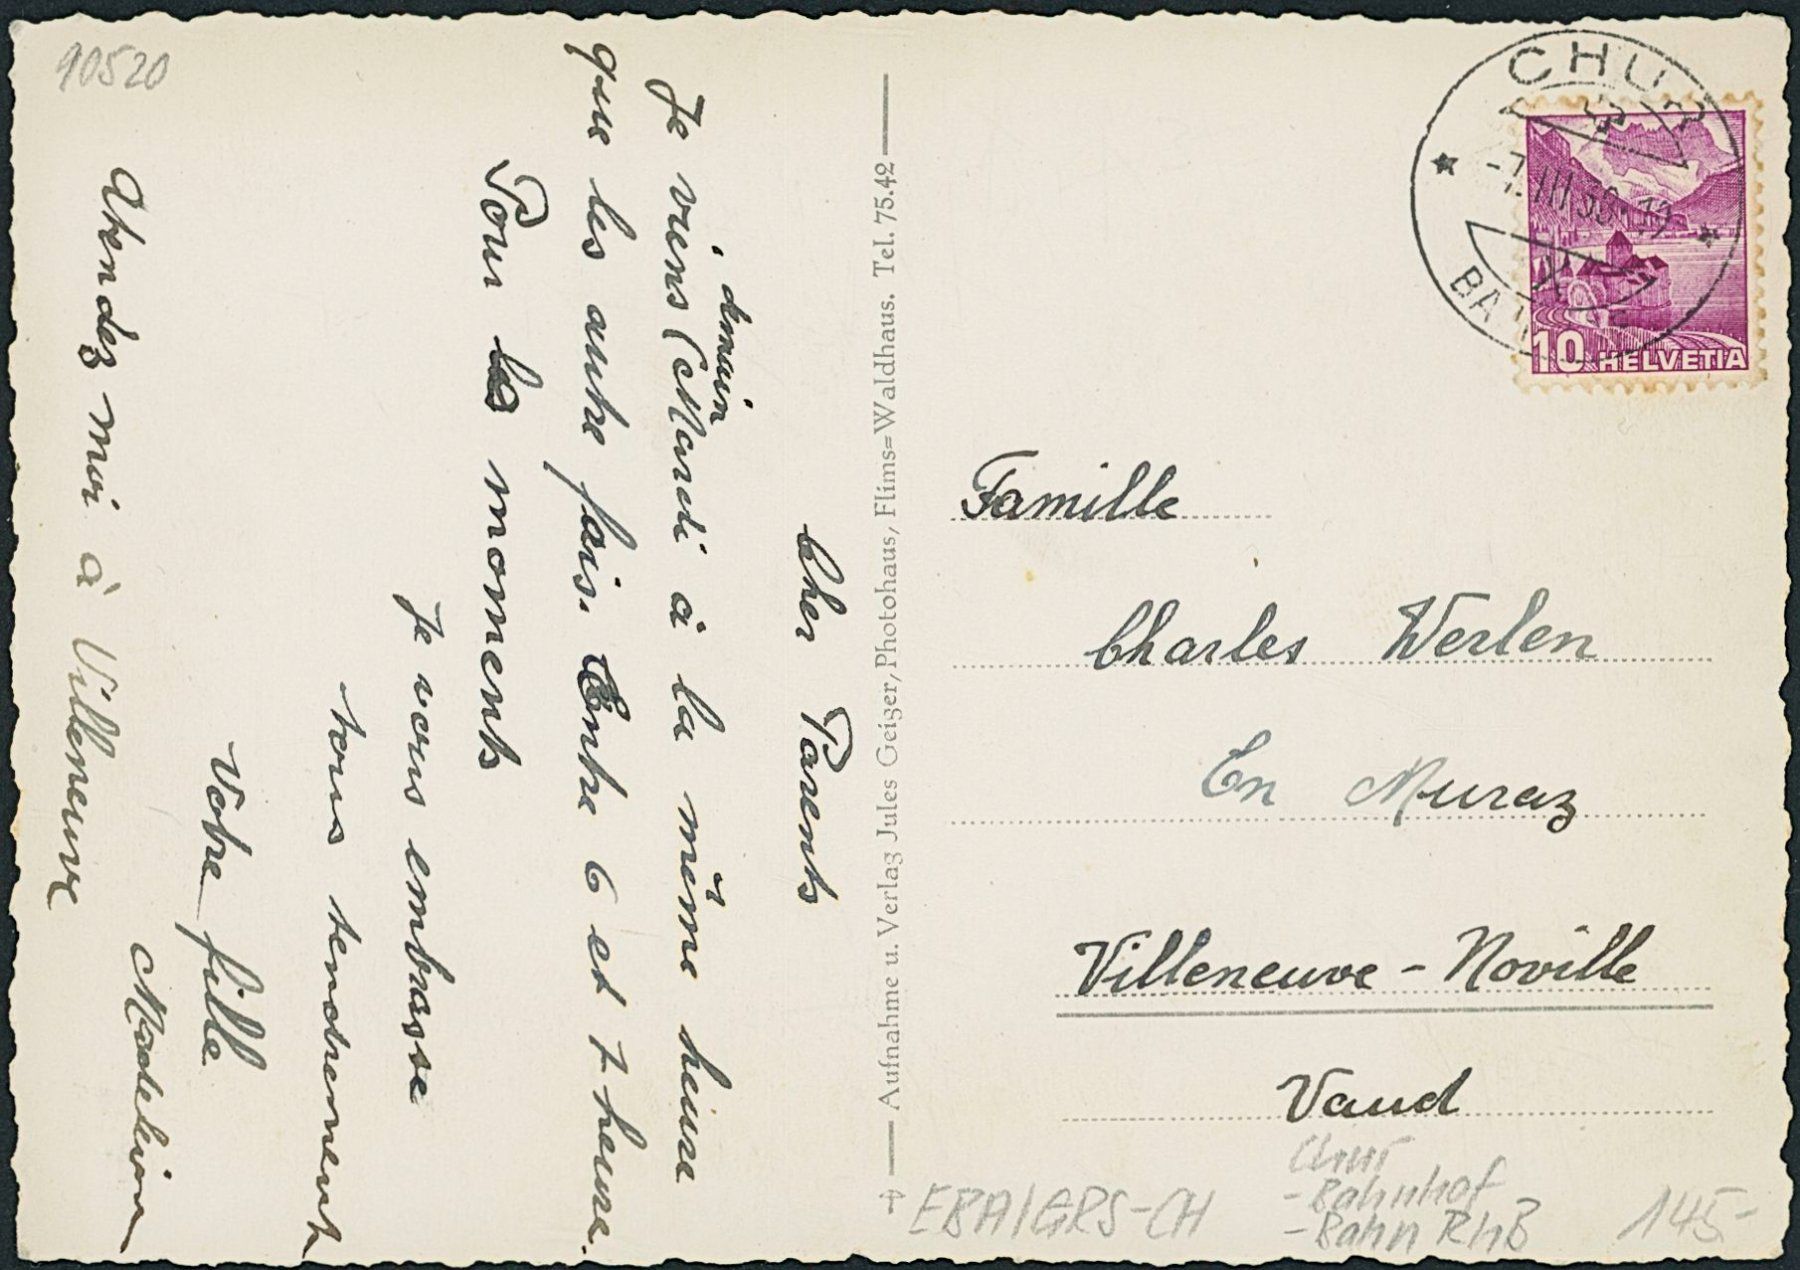 10520
Cher Parents
demain
Je viens (Mardi à la même heure
que les autre fois. Entre 6 et 7 heure.
Pour les moments
Je vous embrasse
tous tendrement
Votre fille
Madeleine
Attendez moi à Villeneuve
Aufnahme u. Verlag Jules Geiger, Photohaus, Flims=Waldhaus. Tel. 75.42
CHUR
-7.III.
BA
10 HELVETIA
Famille
Charles Werlen
En Muraz
Villeneuve - Noville
Vaud
EBA/GRS-CH
Chur
- Bahnhof
- Bahn RhB
145-